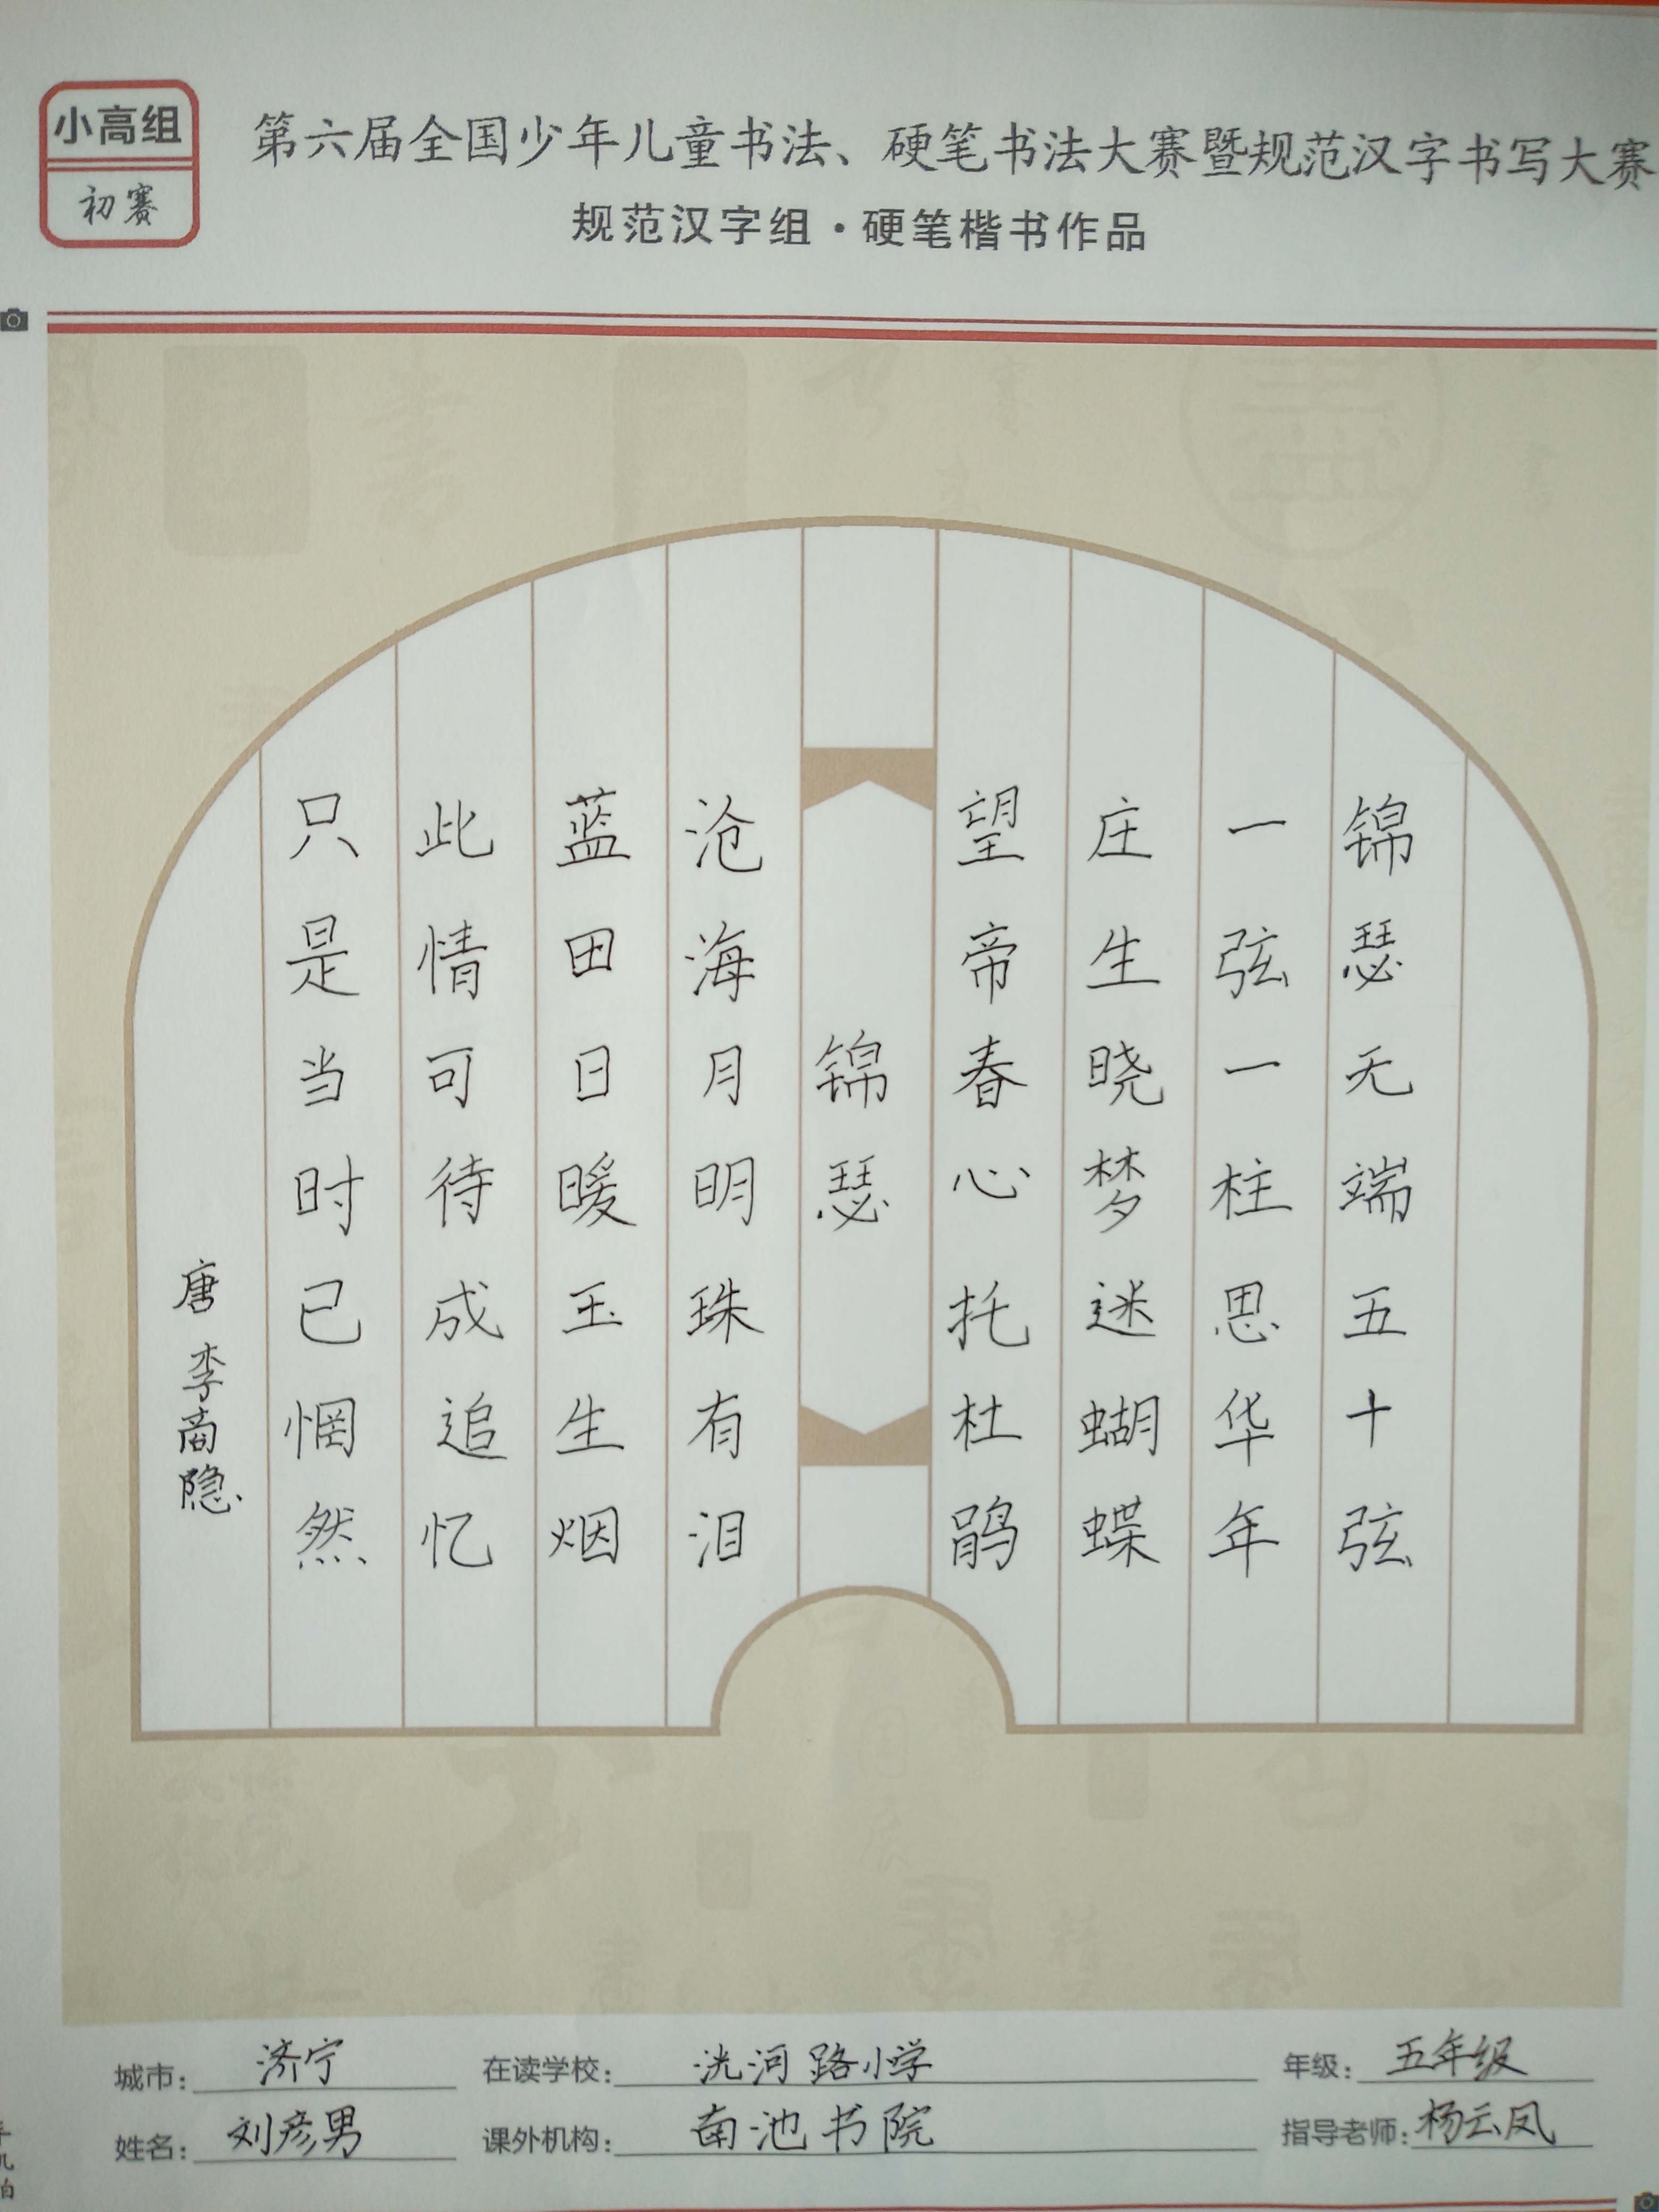 小高组
初赛
第六届全国少年儿童书法、硬笔书法大赛暨规范汉字书写大赛
规范汉字组·硬笔楷书作品
锦瑟无端五十弦
一弦一柱思华年
庄生晓梦迷蝴蝶
望帝春心托杜鹃
锦瑟
沧海月明珠有泪
蓝田日暖玉生烟
此情可待成追忆
只是当时已惘然
唐 李商隐
城市：济宁 在读学校：洸河路小学 年级：五年级
姓名：刘彦男 课外机构：南池书院 指导老师：杨云凤